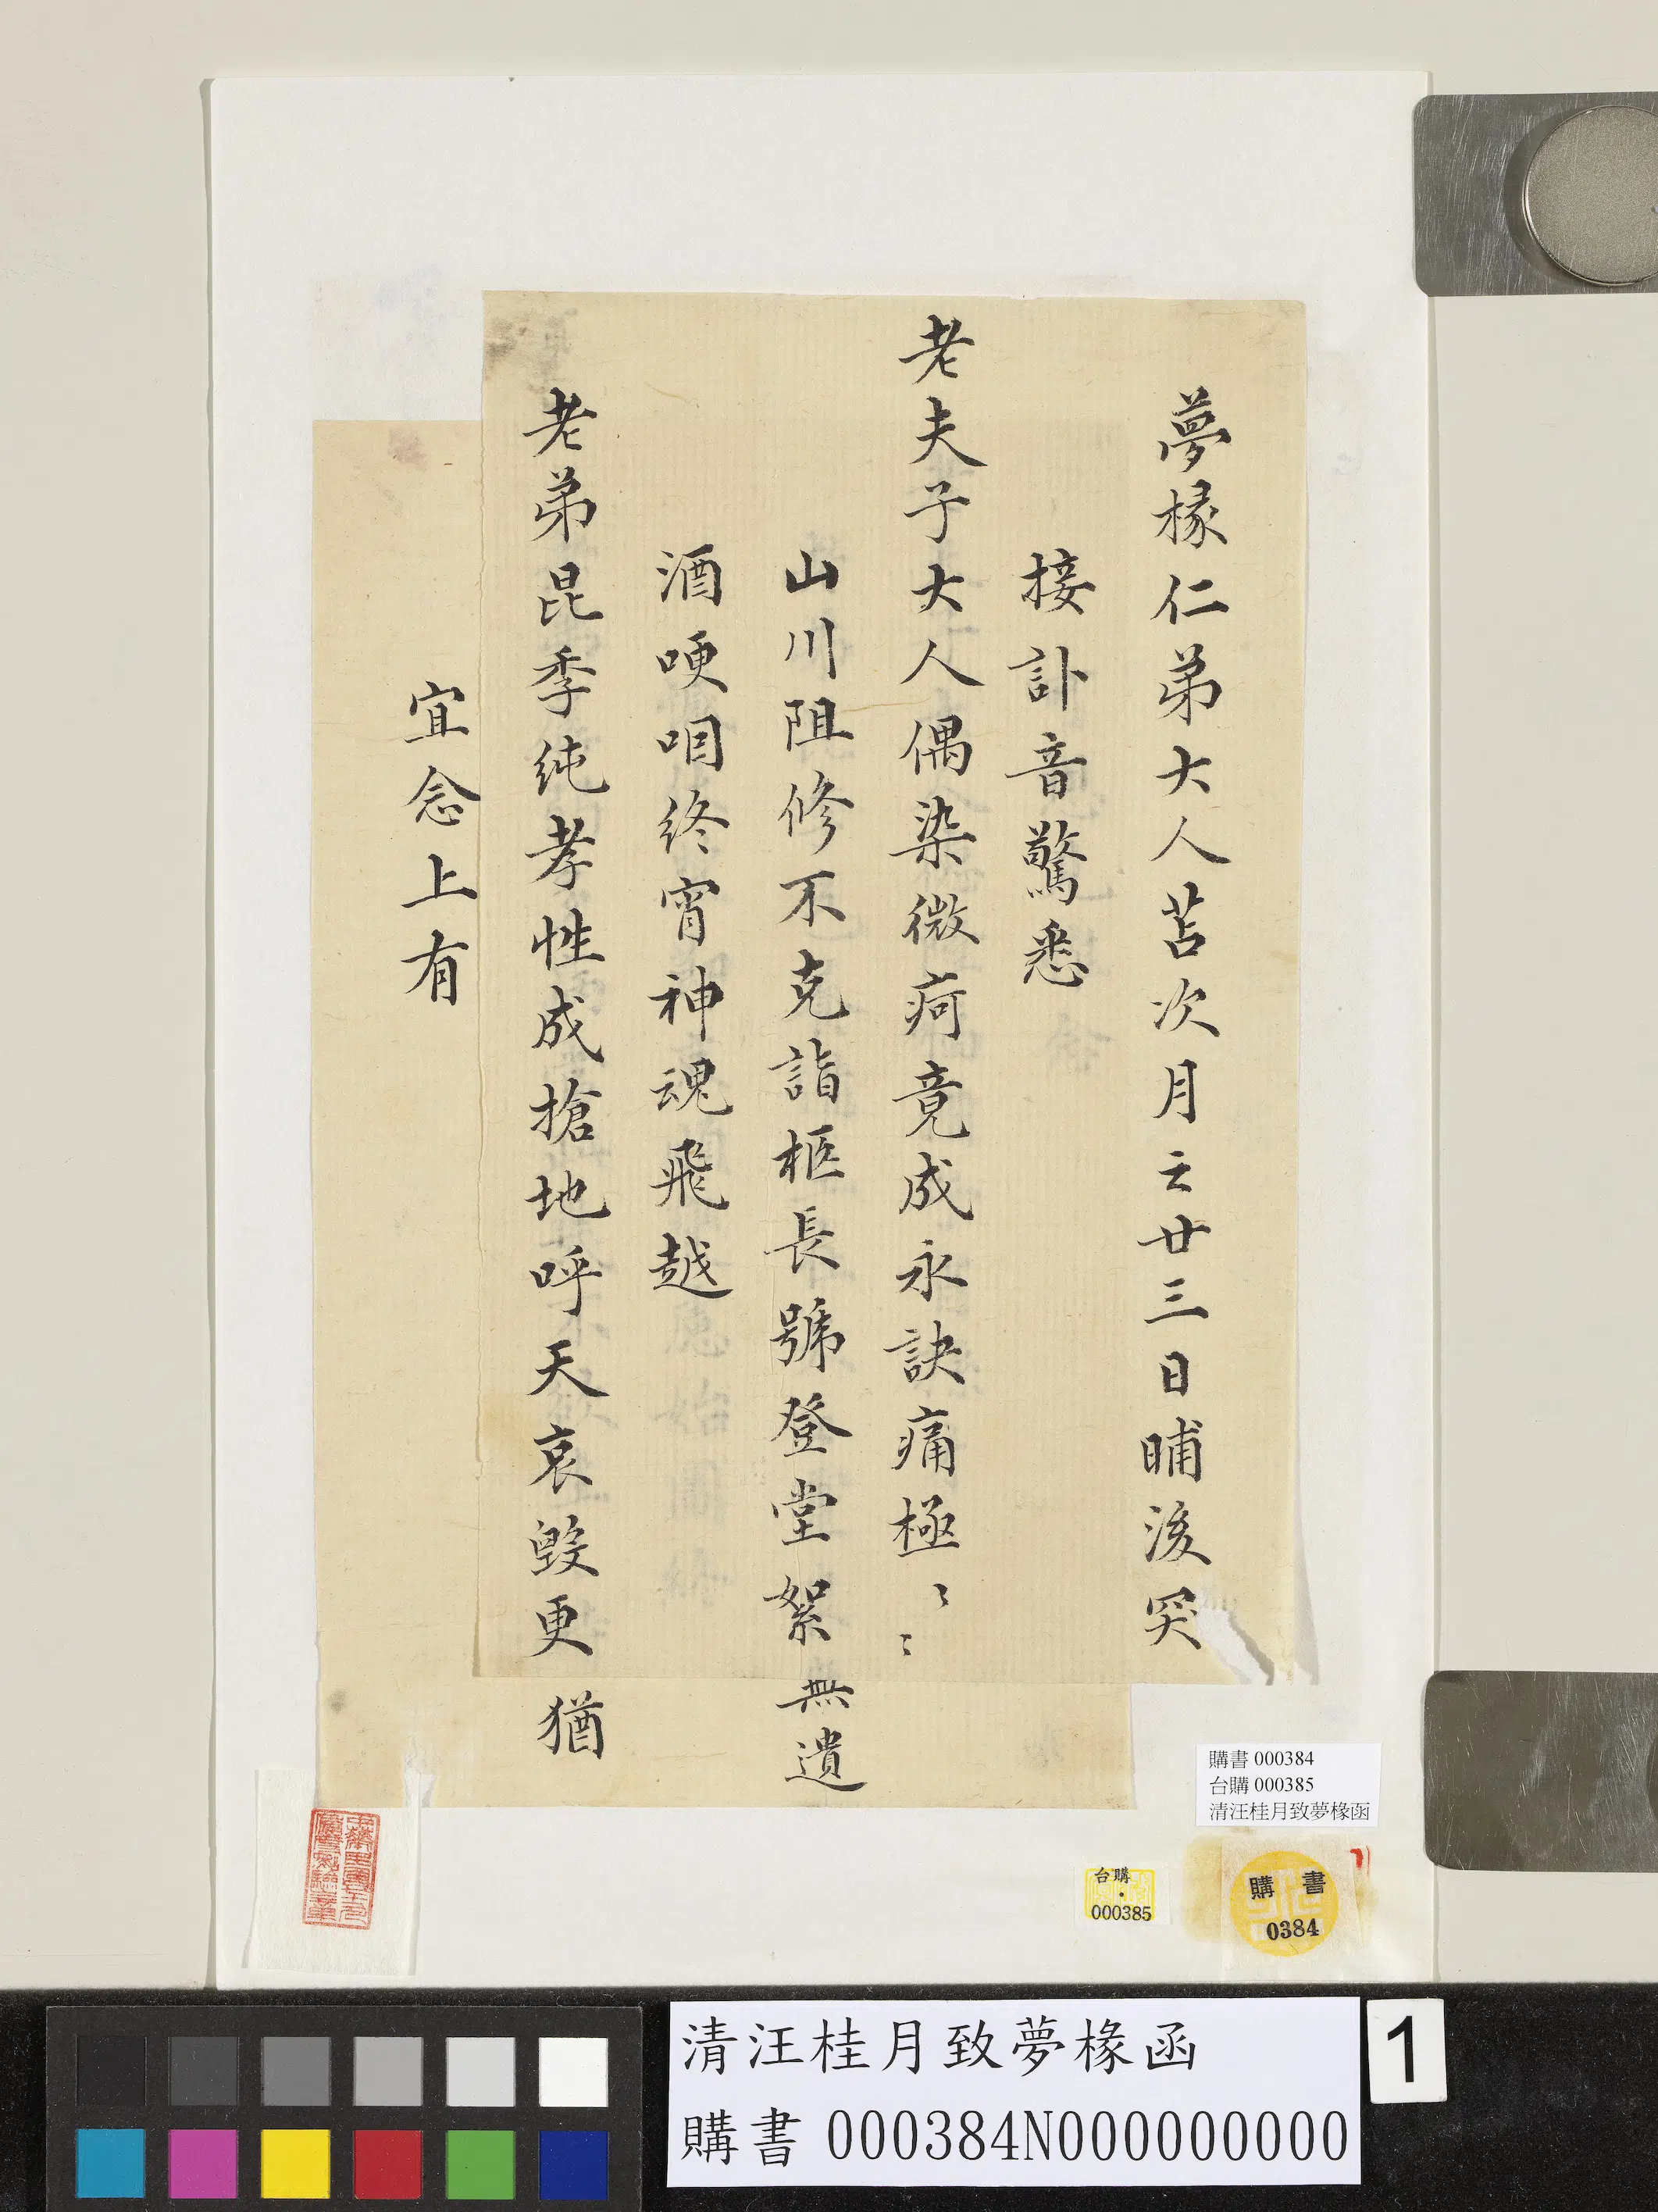 夢椽仁弟大人苫次月之廿三日晡後突
接訃音驚悉
老夫子大人偶染微痾竟成永訣痛極〻〻
山川阻修不克詣柩長號登堂絮無遺
酒哽咽終宵神魂飛越
老弟昆季純孝性成搶地呼天哀毀更猶
宜念上有
購書 000384
台購 000385
清汪桂月致夢椽函
台購
000385
購書
0384
清汪桂月致夢椽函
購書 000384N000000000
1